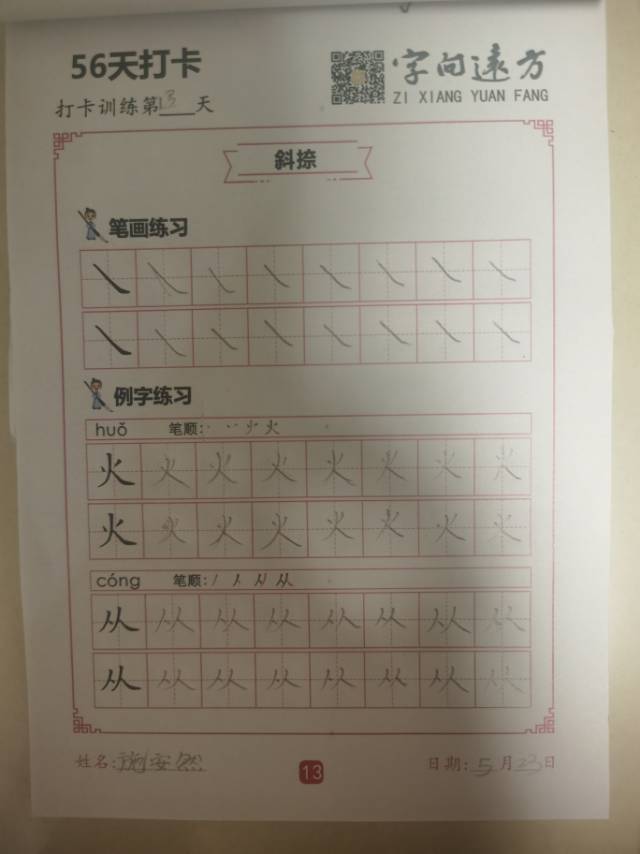 56天打卡
字向遠方
ZI XIANG YUAN FANG
打卡训练第13天
斜捺
笔画练习
例字练习
huǒ 笔顺: 火
火 火 火 火 火 火 火 火
火 火 火 火 火 火 火 火
cóng 笔顺: 从
从 从 从 从 从 从 从 从
从 从 从 从 从 从 从 从
姓名: 安然 日期: 5月23日
13